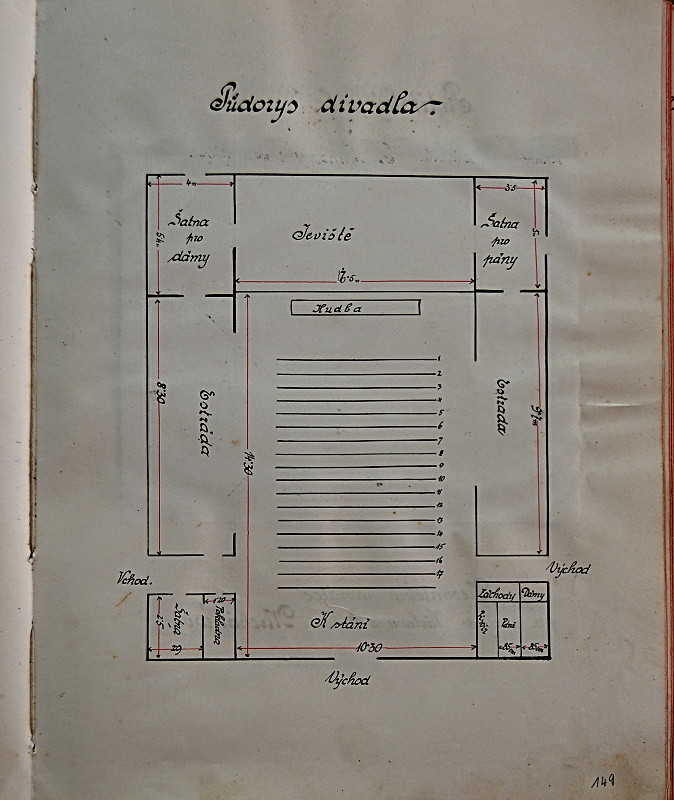 Půdorys divadla.
4m
35
Šatna
pro
dámy
Jeviště
Šatna
pro
pány
5
Hudba
1
2
3
4
5
6
7
8
9
10
11
12
13
14
15
16
17
8·30
Estráda
14·30
Estrada
Vchod.
Východ
Šatna
2·5
29
1·20
Pokladna
K stání
10·30
Záchody
Dámy
Páni
85
85
Východ
149